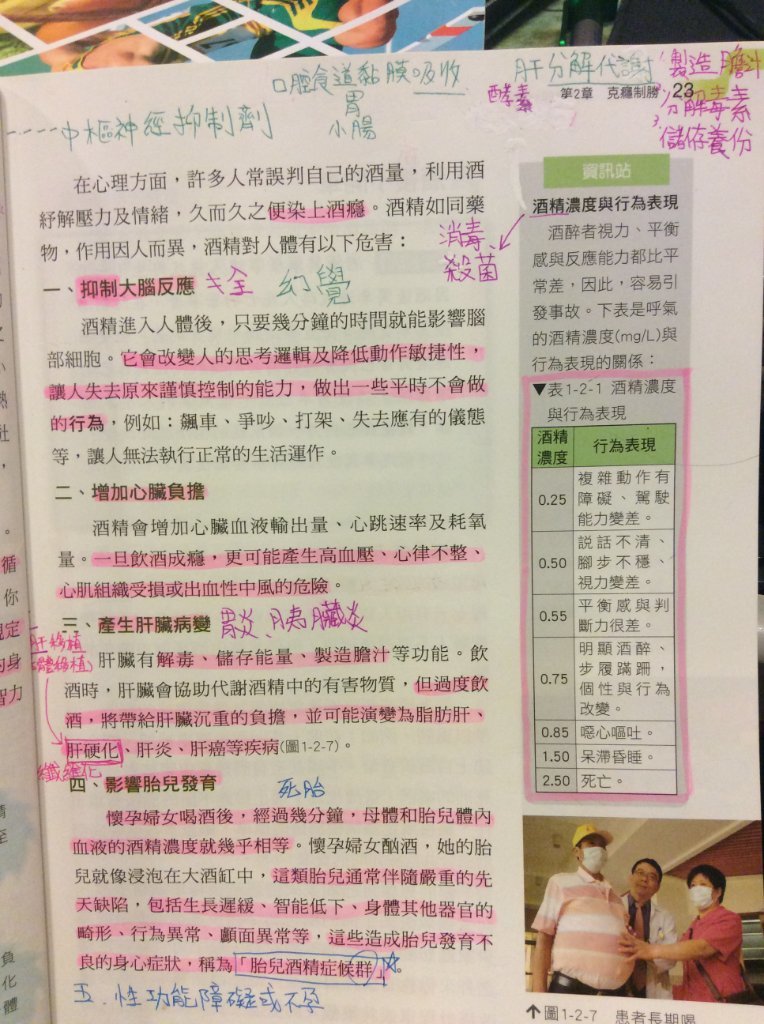 口腔食道黏膜吸收
胃
小腸
肝分解代謝
製造膽汁
分解毒素
儲存養份
酵素
第2章 克癮制勝 23
中樞神經抑制劑
在心理方面，許多人常誤判自己的酒量，利用酒
紓解壓力及情緒，久而久之便染上酒癮。酒精如同藥
物，作用因人而異，酒精對人體有以下危害：
消毒、
殺菌
一、抑制大腦反應
幻覺
酒精進入人體後，只要幾分鐘的時間就能影響腦
部細胞。它會改變人的思考邏輯及降低動作敏捷性，
讓人失去原來謹慎控制的能力，做出一些平時不會做
的行為，例如：飆車、爭吵、打架、失去應有的儀態
等，讓人無法執行正常的生活運作。
二、增加心臟負擔
酒精會增加心臟血液輸出量、心跳速率及耗氧
量。一旦飲酒成癮，更可能產生高血壓、心律不整、
心肌組織受損或出血性中風的危險。
三、產生肝臟病變 胃炎、胰臟炎
肝移植
肝臟有解毒、儲存能量、製造膽汁等功能。飲
酒時，肝臟會協助代謝酒精中的有害物質，但過度飲
酒，將帶給肝臟沉重的負擔，並可能演變為脂肪肝、
肝硬化、肝炎、肝癌等疾病(圖1-2-7)。
纖維化
四、影響胎兒發育 死胎
懷孕婦女喝酒後，經過幾分鐘，母體和胎兒體內
血液的酒精濃度就幾乎相等。懷孕婦女酗酒，她的胎
兒就像浸泡在大酒缸中，這類胎兒通常伴隨嚴重的先
天缺陷，包括生長遲緩、智能低下、身體其他器官的
畸形、行為異常、顱面異常等，這些造成胎兒發育不
良的身心症狀，稱為「胎兒酒精症候群」。
五、性功能障礙或不孕
資訊站
酒精濃度與行為表現
酒醉者視力、平衡
感與反應能力都比平
常差，因此，容易引
發事故。下表是呼氣
的酒精濃度(mg/L)與
行為表現的關係：
▼表1-2-1 酒精濃度
與行為表現
酒精
濃度 行為表現
0.25 複雜動作有
障礙、駕駛
能力變差。
0.50 說話不清、
腳步不穩、
視力變差。
0.55 平衡感與判
斷力很差。
0.75 明顯酒醉、
步履蹣跚，
個性與行為
改變。
0.85 噁心嘔吐。
1.50 呆滯昏睡。
2.50 死亡。
↑圖1-2-7 患者長期喝